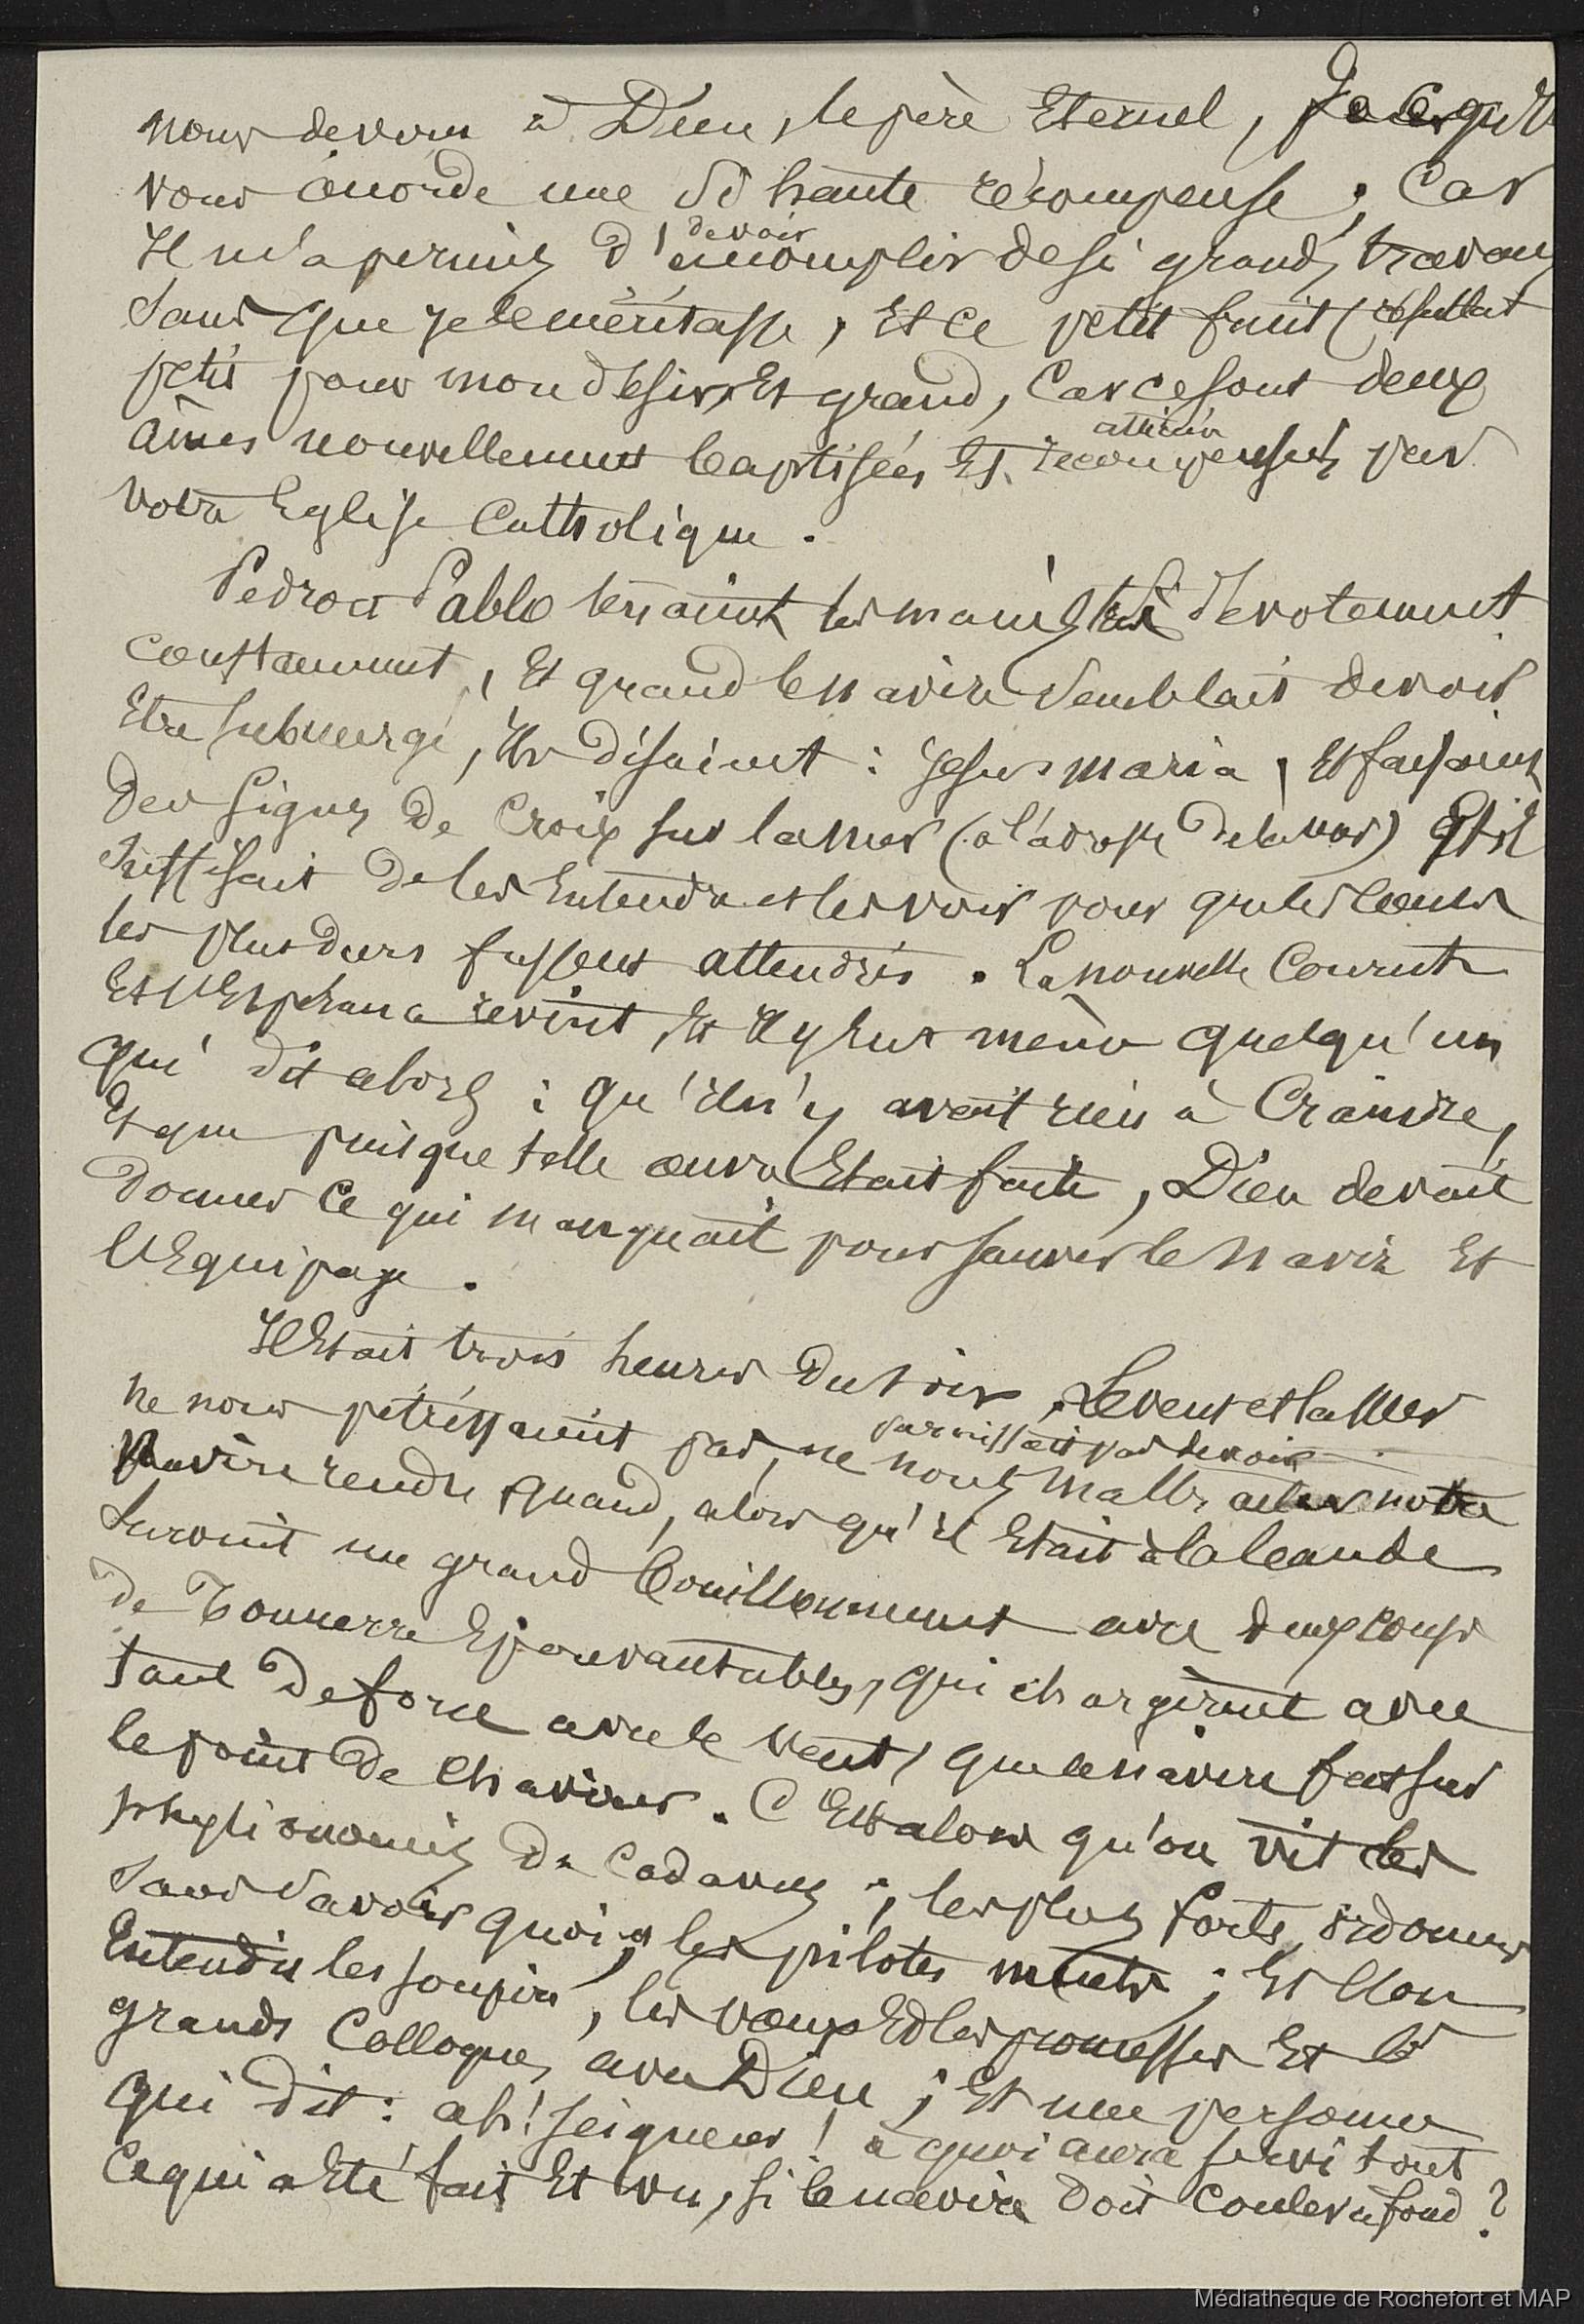 nous devons à Dieu, le père Eternel, qu'il
vous accorde une si haute récompense ; Car
Il m'a permis d'accomplir devoir de si grands travaux
sans que je le méritasse, Et ce petit fruit (résultat
petit pour mon désir, Et grand, Car ce sont deux
âmes nouvellement baptisées Et récompensés par
votre Eglise Catholique.
Pedro et Pablo tenaient les mains dévotement
constamment, Et quand le navire semblait devoir
Etre submergé, Ils disaient : Jesus maria, Et faisaient
des signes de Croix sur la mer (à l'adresse de la mer) Et il
suffisait de les Entendre et les voir pour que les coeurs
les plus durs fussent attendris. La nouvelle Courut
Et l'Espérance revint, Et Il y Eut même quelqu'un
qui dit alors : qu'il n'y avait rien à Craindre,
Et que puisque telle oeuvre Etait faite, Dieu devait
donner ce qui manquait pour sauver le navire Et
l'Equipage.
Il Etait trois heures du soir, Le vent et la Mer
ne nous pétrissaient pas, ne nous maltraiter notre
paraissait pas devoir
navire rendre quand, alors qu'il Etait à la bande
survint un grand bouillonnement avec deux coups
de Tonnerre Epouvantables, qui chargèrent avec
tant de force avec le vent, que le navire fut sur
le point de chavirer. C'Est alors qu'on vit des
physionomies de Cadavres ; les plus forts, ordonner
sans savoir quoi ; les pilotes muets ; Et l'on
Entendit les soupirs, les voeux Et les promesses Et les
grands Colloques avec Dieu ; Et une personne
qui dit : ah ! seigneur ! à quoi aura servi tout
ce qui a Eté fait Et vu, si le navire doit couler à fond ?
Médiathèque de Rochefort et MAP